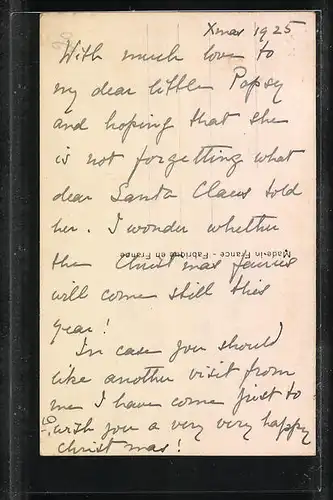 Xmas 1925
With much love to
my dear little Popsy
and hoping that she
is not forgetting what
dear Santa Claus told
her. I wonder whether
the Christmas fairies
will come still this
year!
In case you should
like another visit from
me I have come just to
wish you a very very happy
Christmas!
Made in France - Fabriqué en France